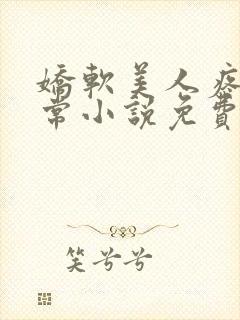 嬌軟美人疼
常小說免費
笑兮兮